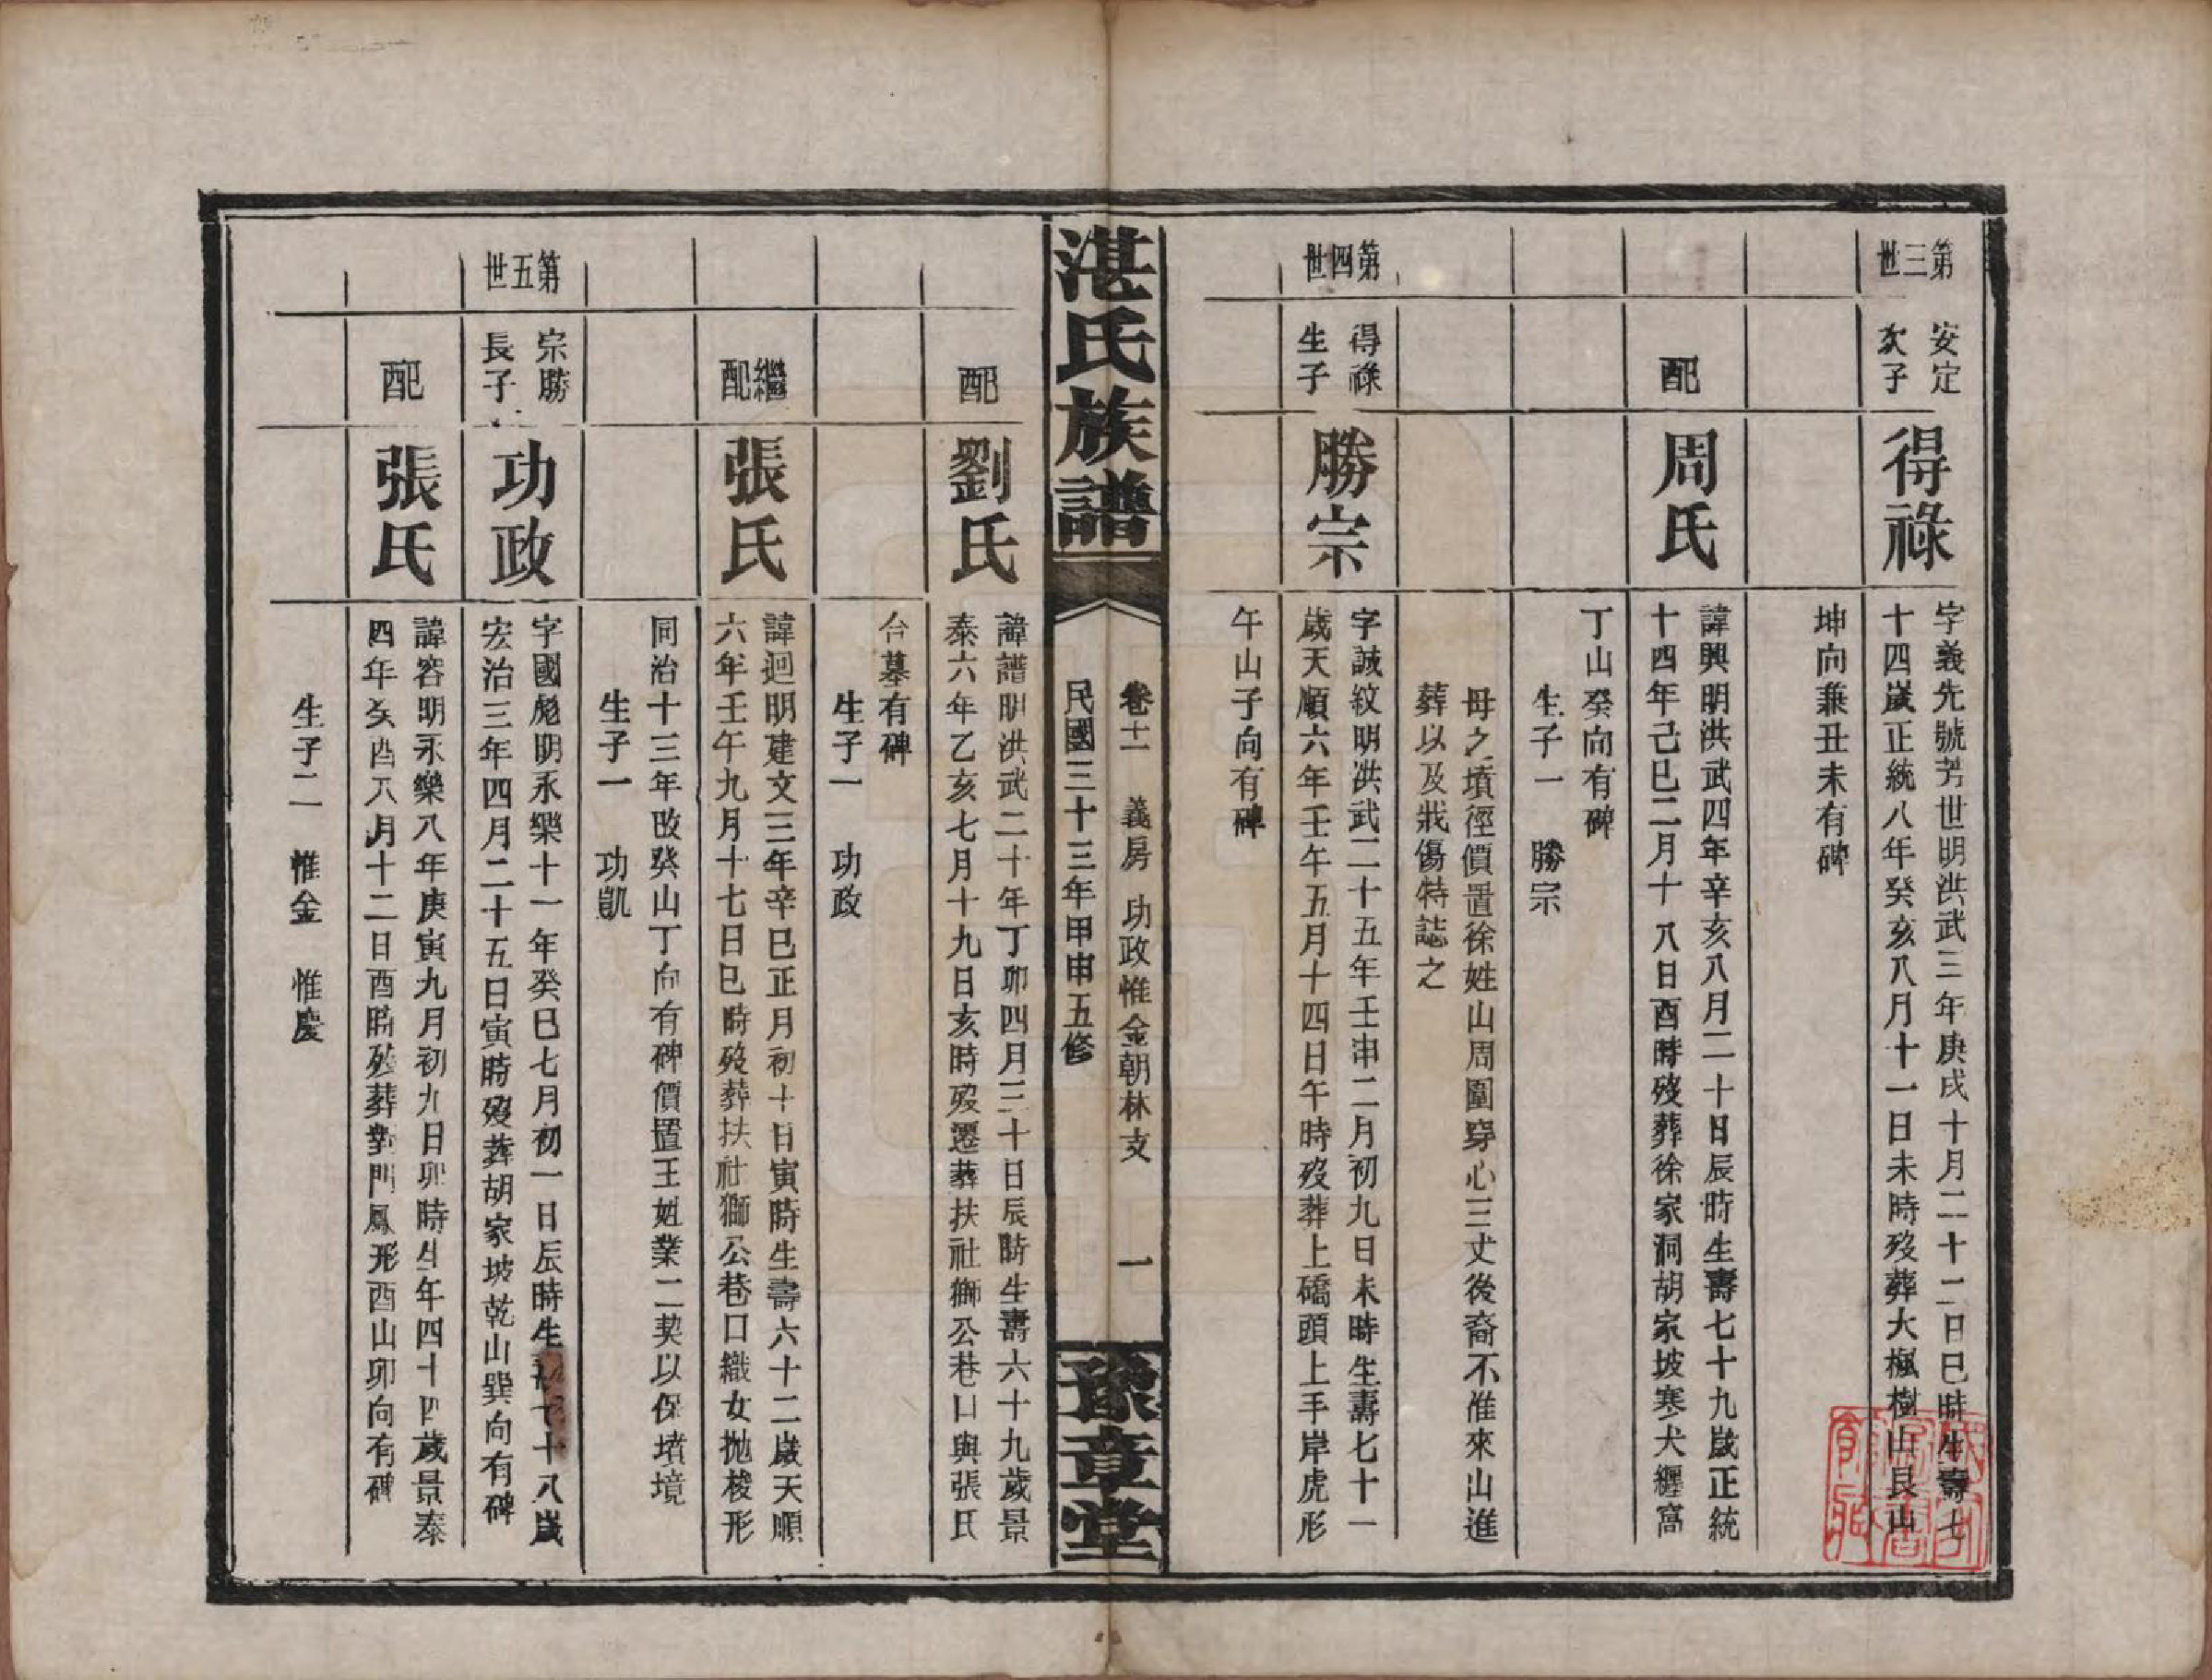 第三世
安定
次子
得祿
字義先號芳世明洪武三年庚戌十月二十二日巳時生壽七
十四歲正統八年癸亥八月十一日未時歿葬大楓樹山艮山
坤向兼丑未有碑
配
周氏
諱興明洪武四年辛亥八月二十日辰時生壽七十九歲正統
十四年己巳二月十八日酉時歿葬徐家洞胡家坡寒犬纏窩
丁山癸向有碑
生子一 勝宗
母之墳徑價置徐姓山周圍穿心三丈後裔不惟來山進
葬以及戕傷特誌之
第四世
得祿
生子
勝宗
字誠紋明洪武二十五年壬申二月初九日未時生壽七十一
歲天順六年壬午五月十四日午時歿葬上礄頭上手岸虎形
午山子向有碑
湛氏族譜
卷十二 義房 功政惟金朝林支 一
民國三十三年甲申五修
豫章堂
配
劉氏
諱譜明洪武二十年丁卯四月三十日辰時生壽六十九歲景
泰六年乙亥七月十九日亥時歿遷葬扶社獅公巷口與張氏
合墓有碑
生子一 功政
繼配
張氏
諱迴明建文三年辛巳正月初十日寅時生壽六十二歲天順
六年壬午九月十七日巳時歿葬扶社獅公巷口織女拋梭形
同治十三年改癸山丁向有碑價置王姓業二契以保墳境
生子一 功凱
第五世
宗勝
長子
功政
字國彪明永樂十一年癸巳七月初一日辰時生壽七十八歲
宏治三年四月二十五日寅時歿葬胡家坡乾山巽向有碑
配
張氏
諱容明永樂八年庚寅九月初九日卯時生年四十四歲景泰
四年癸酉八月十二日酉時歿葬對門鳳形酉山卯向有碑
生子二 惟金 惟慶